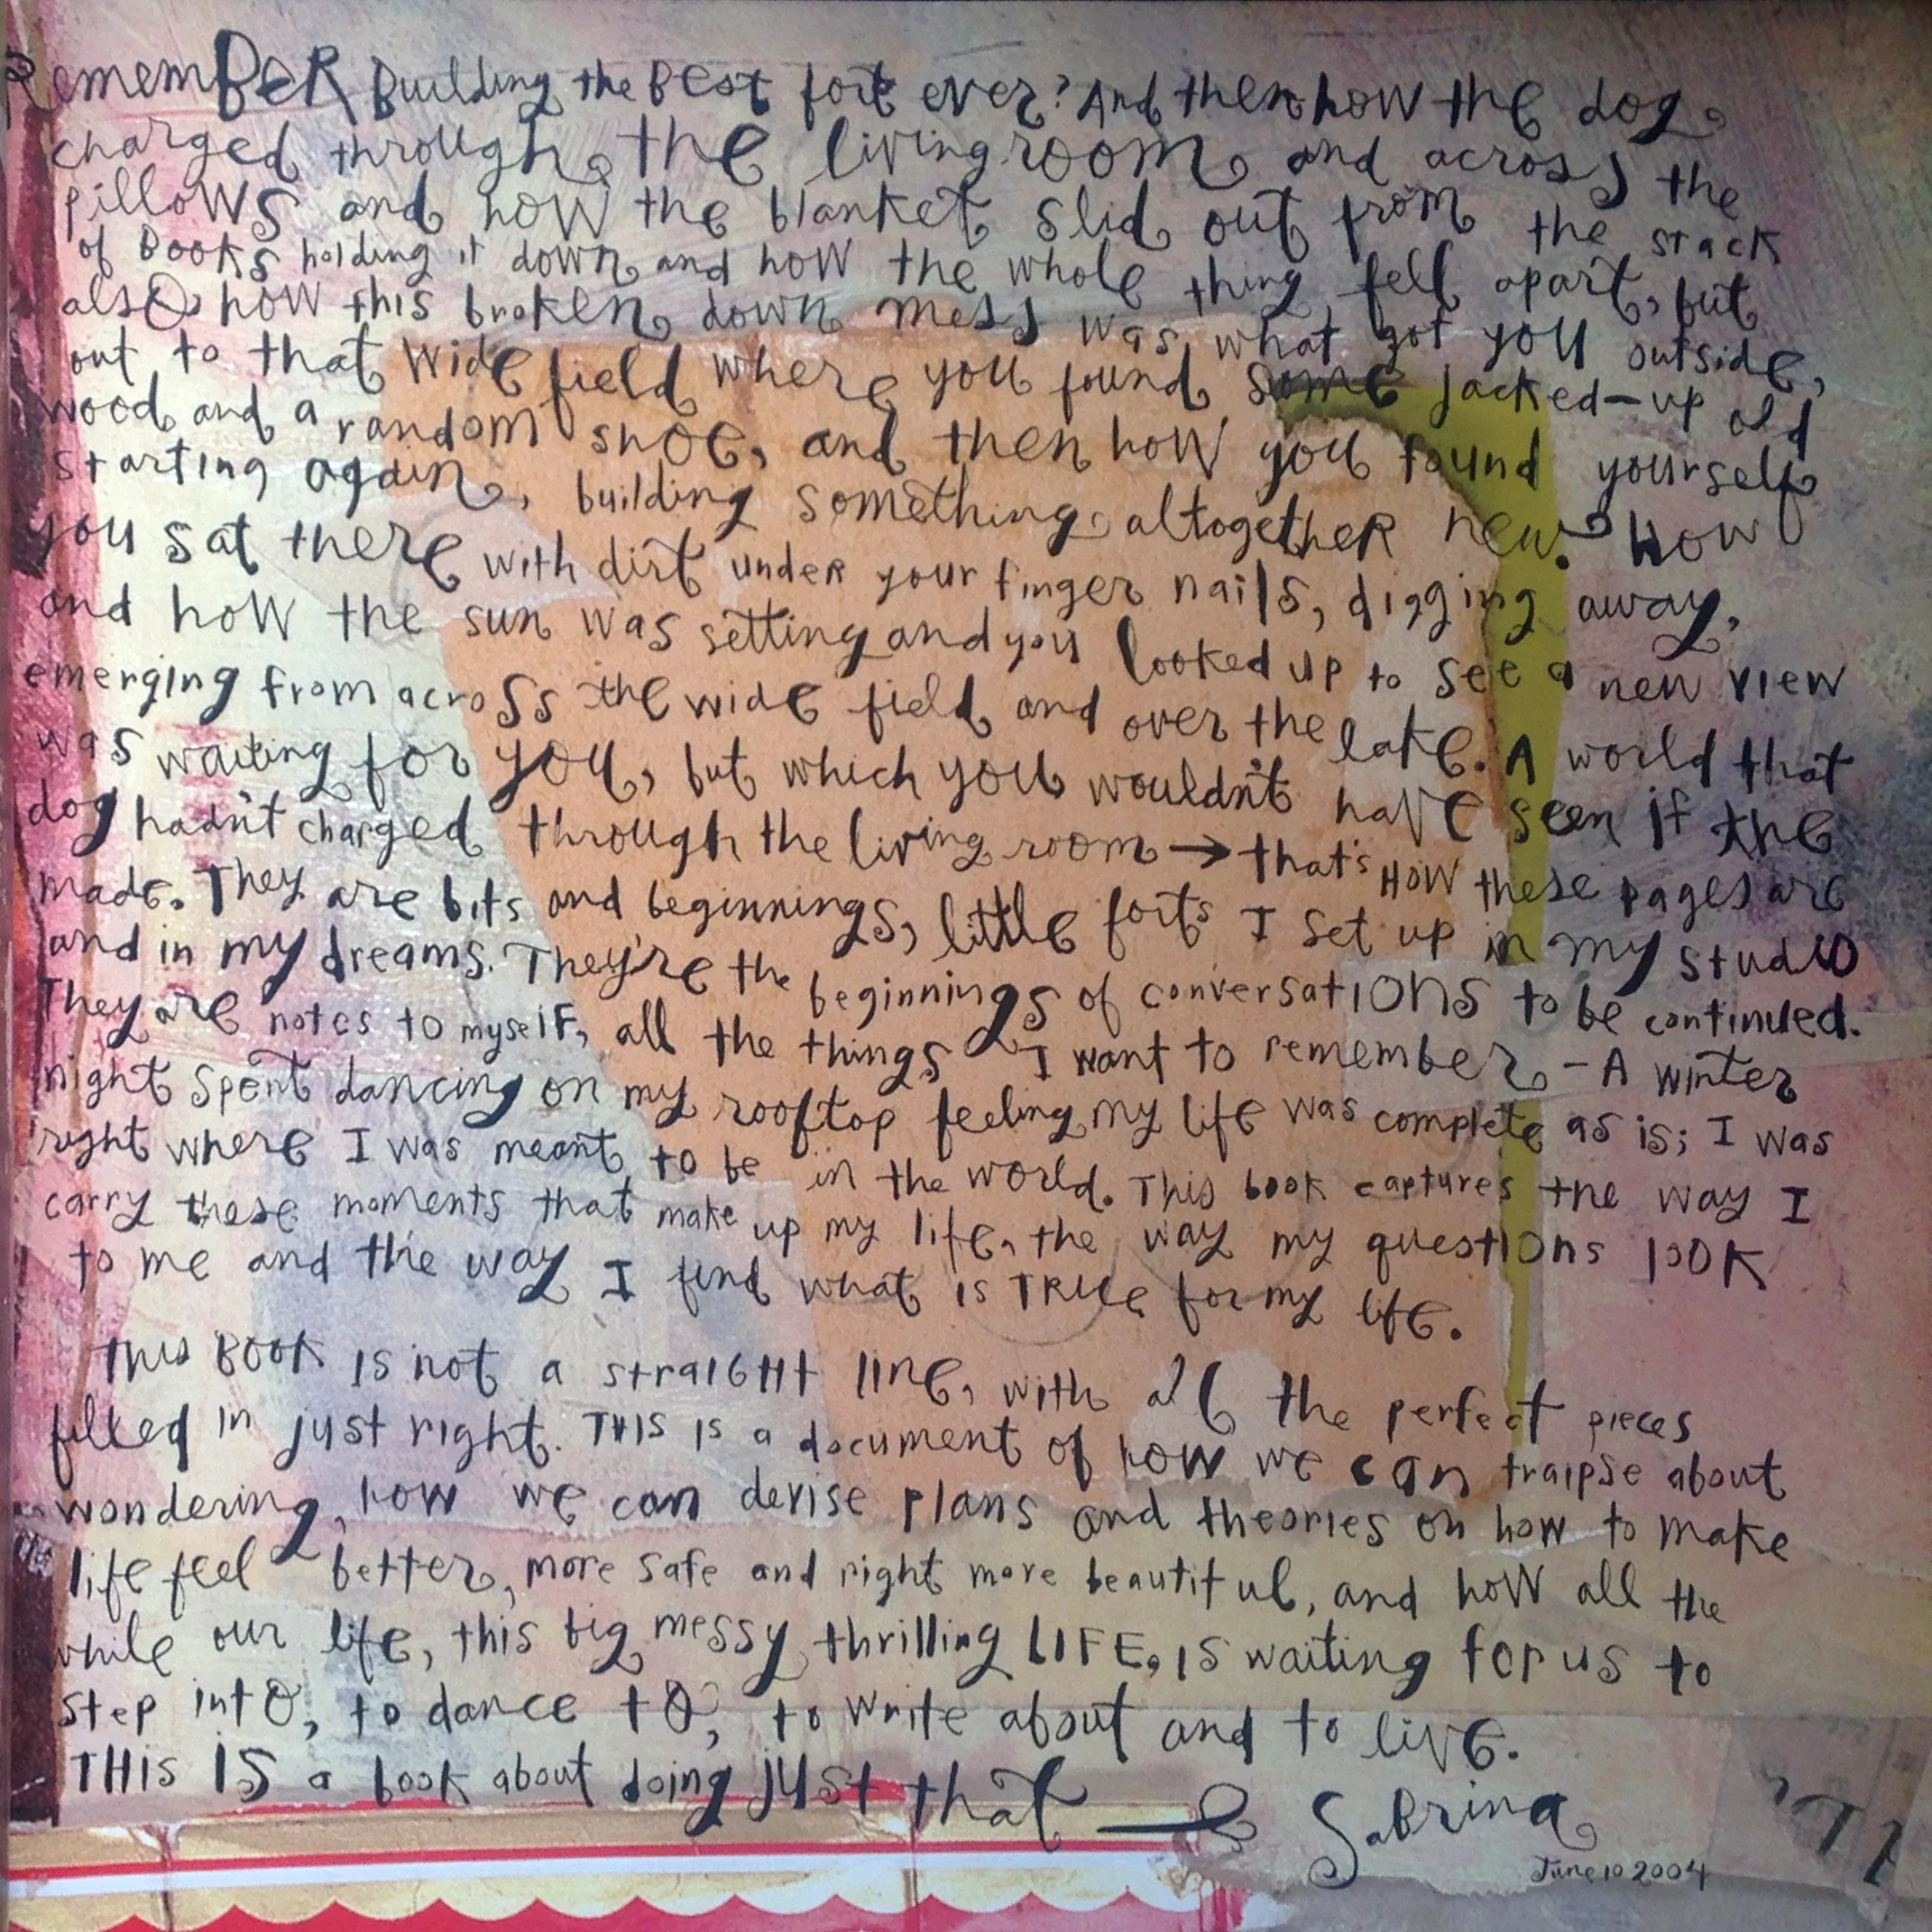 Remember Building the Best fort ever? And then how the dog
charged through the livingroom and across the
pillows and how the blanket slid out from the stack
of Books holding it down and how the whole thing fell apart, but
also how this broken down mess was what got you outside,
out to that wide field where you found some jacked-up old
wood and a random shoe, and then how you found yourself
starting again, building something altogether new. How
you sat there with dirt under your finger nails, digging away,
and how the sun was setting and you looked up to see a new view
emerging from across the wide field and over the lake. A world that
was waiting for you, but which you wouldn't have seen if the
dog hadn't charged through the living room → that's HOW these pages are
made. They are bits and beginnings, little forts I set up in my studio
and in my dreams. They're the beginnings of conversations to be continued.
They are notes to myself, all the things I want to remember - A winter
night spent dancing on my rooftop feeling my life was complete as is; I was
right where I was meant to be in the world. This book captures the way I
carry these moments that make up my life, the way my questions look
to me and the way I find what is TRUE for my life.
This BOOK is not a straight line, with all the perfect pieces
filled in just right. THIS is a document of how we can traipse about
wondering, how we can devise plans and theories on how to make
life feel better, more safe and right more beautiful, and how all the
while our life, this big messy thrilling LIFE, is waiting for us to
step into, to dance to, to write about and to live.
THIS IS a book about doing just that
Sabrina
June 10 2004